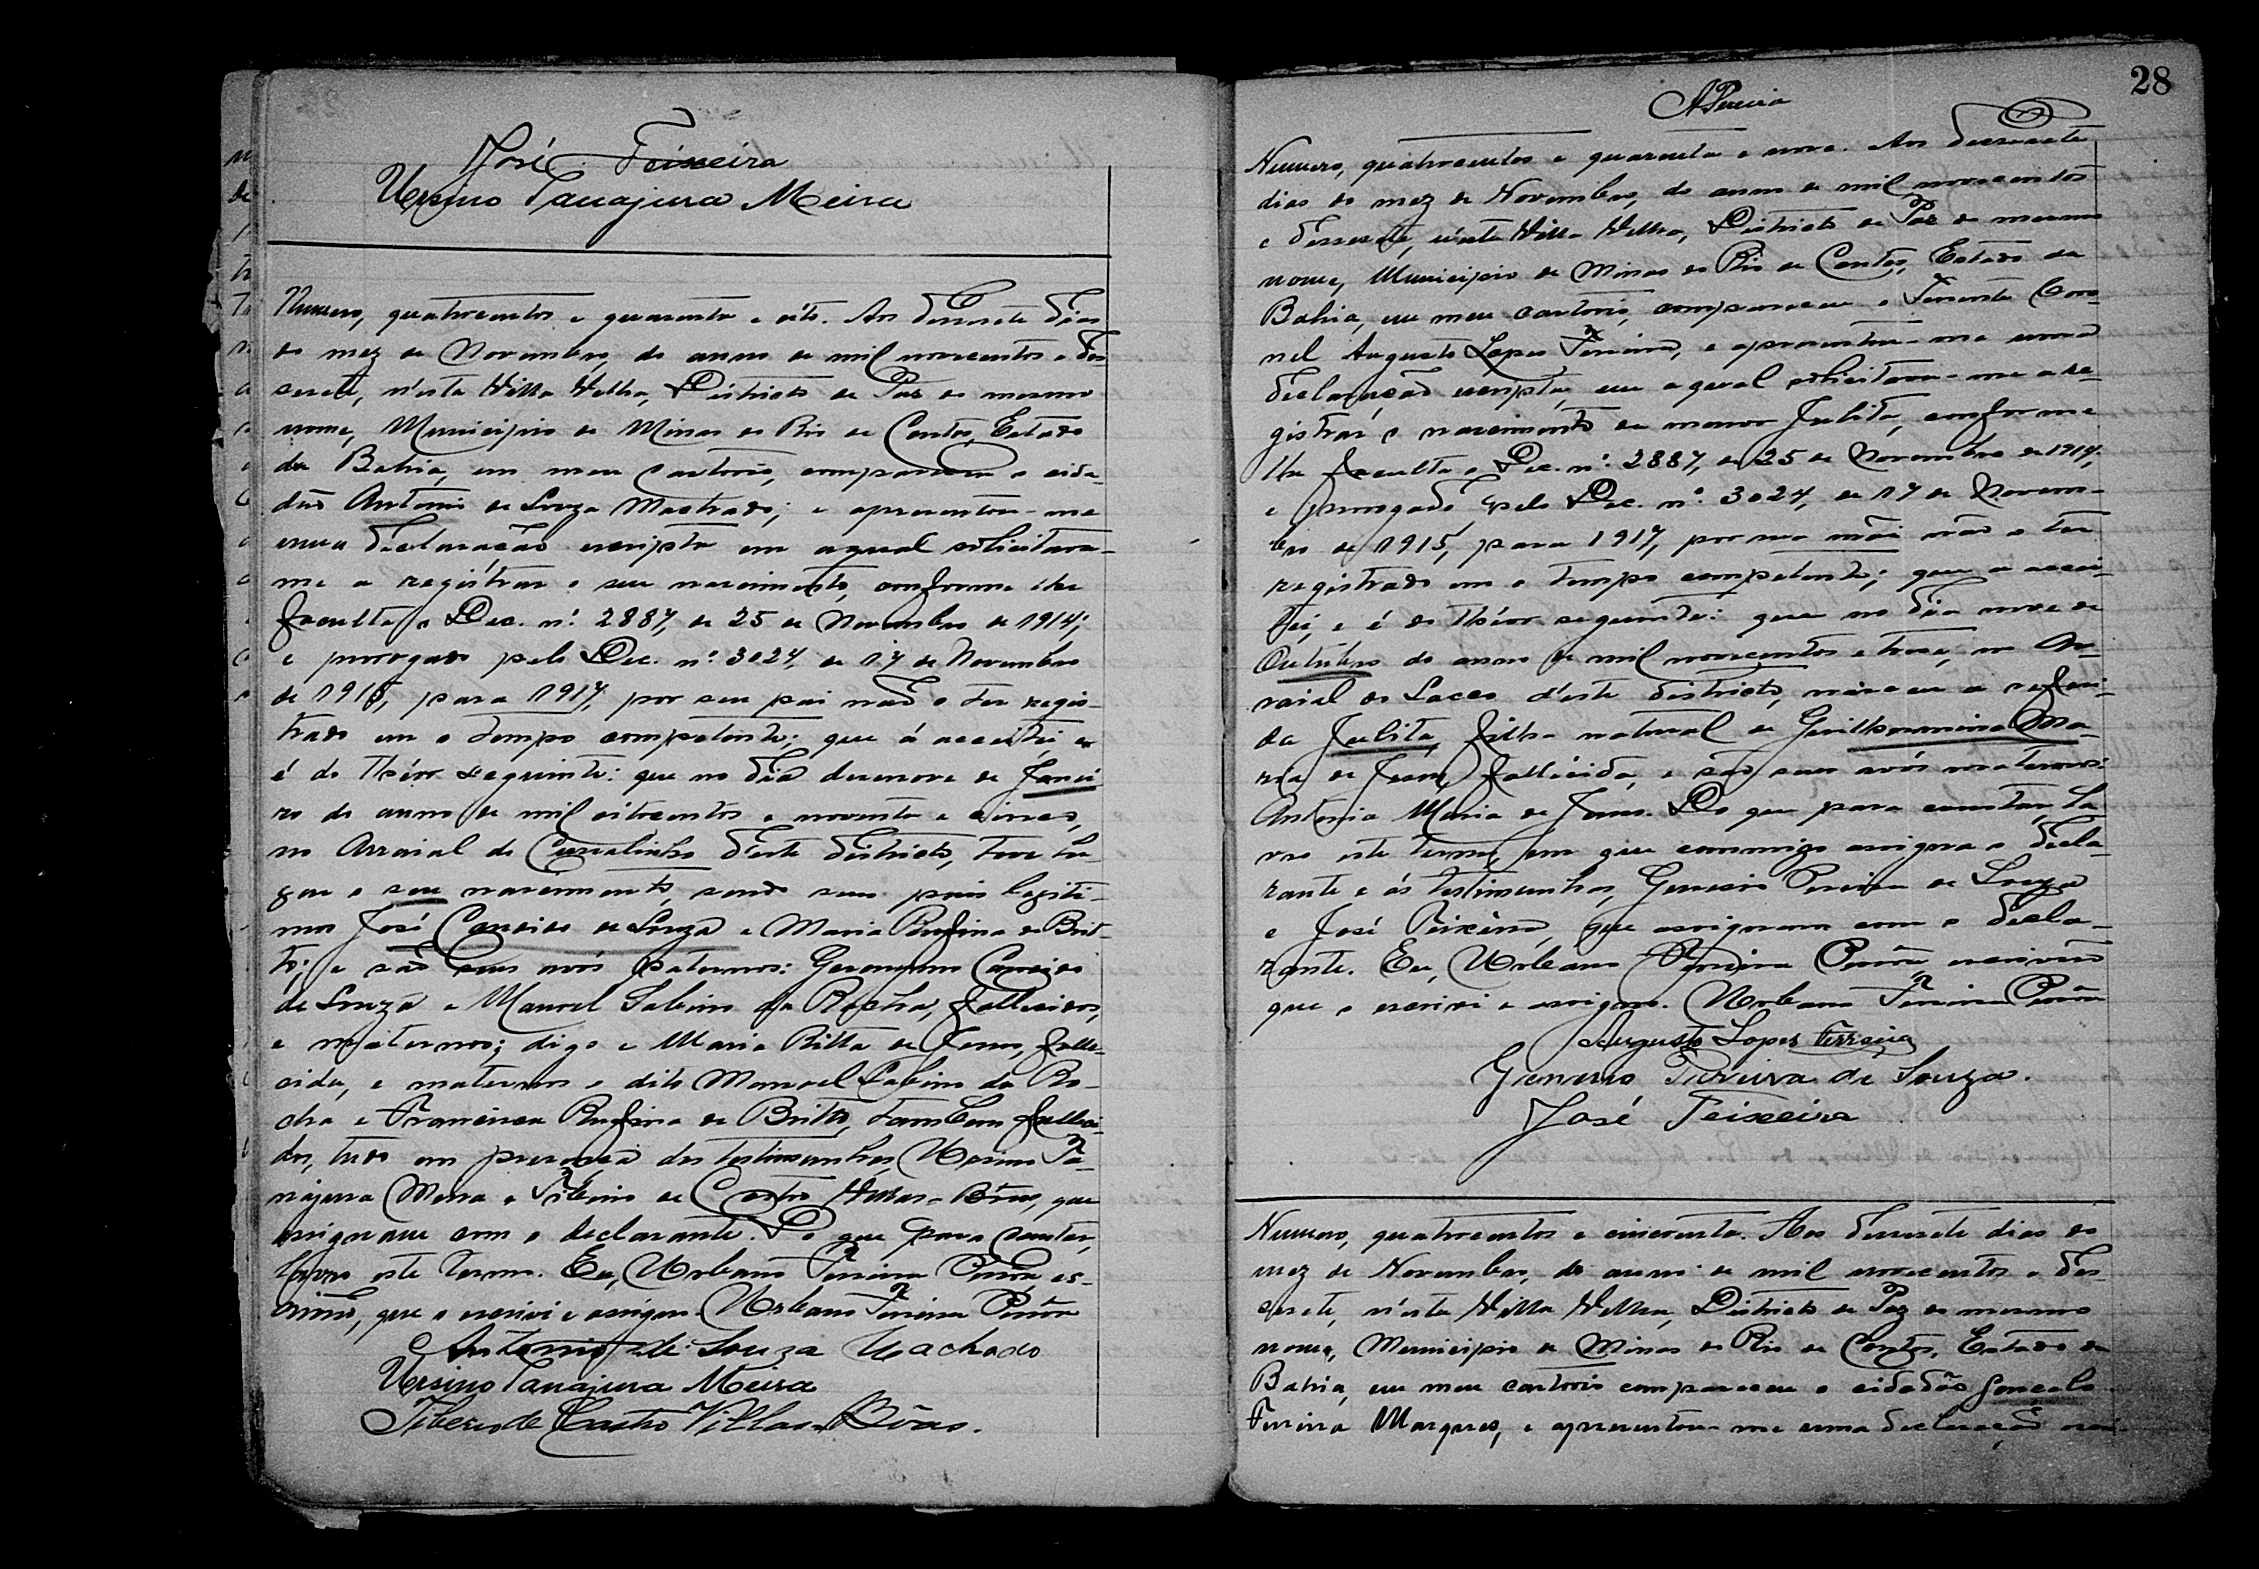 José Teixeira
Ursino Tanajura Meira
Numero, quatrocentos e quarenta e oito. Aos dessesete dias
do mez de Novembro, do anno de mil novecentos e des-
sesete, n'esta Villa Velha, Districto de Paz do mesmo
nome, Municipio de Minas do Rio de Contas, Estado
da Bahia, em meu cartorio, compareceu o cida-
dão Antonio de Souza Machado; e apresentou-me
uma declaração escripta em a qual solicitava-
me a registrar o seu nascimento, conforme lhe
faculta o Dec. nº. 2887, de 25 de Novembro de 1914,
e prorogado pelo Dec. nº. 3024, de 17 de Novembro
de 1915, para 1917, por seu pai não o ter regis-
trado em o tempo competente; que á acceitei e
é do theôr seguinte: que no dia desenove de Janei-
ro do anno de mil oitocentos e noventa e cinco,
no Arraial do Curralinho d'este districto, teve lu-
gar o seu nascimento, sendo seus pais legiti-
mos José Candido de Souza e Maria Rufina de Brit-
to; e são seus avós paternos: Geronymo
de Souza e Manoel Sabino da Rocha, fallecidos,
e maternos; digo e Maria Ritta de Jesus, falle-
cida, e maternos o dito Manoel Sabino da Ro-
cha e Francisca Rufina de Britto, tambem falleci-
dos, tudo em presença das testimunhas, Ursino Ta-
najura Meira e Tiberio de Castro Villas-Bôas, que
assignam com o declarante. Do que para constar,
lavro este termo. Eu, Urbano Ferreira es-
crivão, que o escrivi e assigno. Urbano Ferreira
Antonio de Souza Machado
Ursino Tanajura Meira
Tiberio de Castro Villas-Bôas.
28
APereira
Numero, quatrocentos e quarenta e nove. Aos dessesete
dias do mez de Novembro, do anno de mil novecentos
e dessesete, n'esta Villa Velha, Districto de Paz do mesmo
nome, Municipio de Minas do Rio de Contas, Estado da
Bahia, em meu cartorio, compareceu o Tenente Coro-
nel Augusto Lopes Ferreira, e apresentou-me uma
declaração escripta, em a qual solicitava-me a re-
gistrar o nascimento da menor Julita, conforme
lhe faculta o Dec. nº. 2887, de 25 de Novembro de 1914,
e prorogado pelo Dec. nº. 3024, de 17 de Novem-
bro de 1915, para 1917, por sua mãi não o ter
registrado em o tempo competente; que a accei-
tei, e é do theôr seguinte: que no dia nove de
Outubro do anno de mil novecentos e treze, no Ar-
raial do d'este districto, nasceu a referi-
da Julita, filha natural de Guilhermina Ma-
ria de Jesus, fallecida, e são seus avós maternos:
Antonia Maria de Jesus. Do que para constar, la-
vro este termo, em que commigo assigna o decla-
rante e ás testimunhas, Genesio Pereira de Souza
e José Teixeira, que assignam com o decla-
rante. Eu, Urbano Ferreira escrivão
que o escrivi e assigno. Urbano Ferreira
Augusto Lopes Ferreira
Genesio Pereira de Souza.
José Teixeira
Numero, quatrocentos e cincoenta. Aos dessesete dias do
mez de Novembro, do anno de mil novecentos e des-
sesete, n'esta Villa Velha, Districto de Paz do mesmo
nome, Municipio de Minas do Rio de Contas, Estado da
Bahia, em meu cartorio compareceu o cidadão Gonçalo
Ferreira Marques, e apresentou-me uma declaração